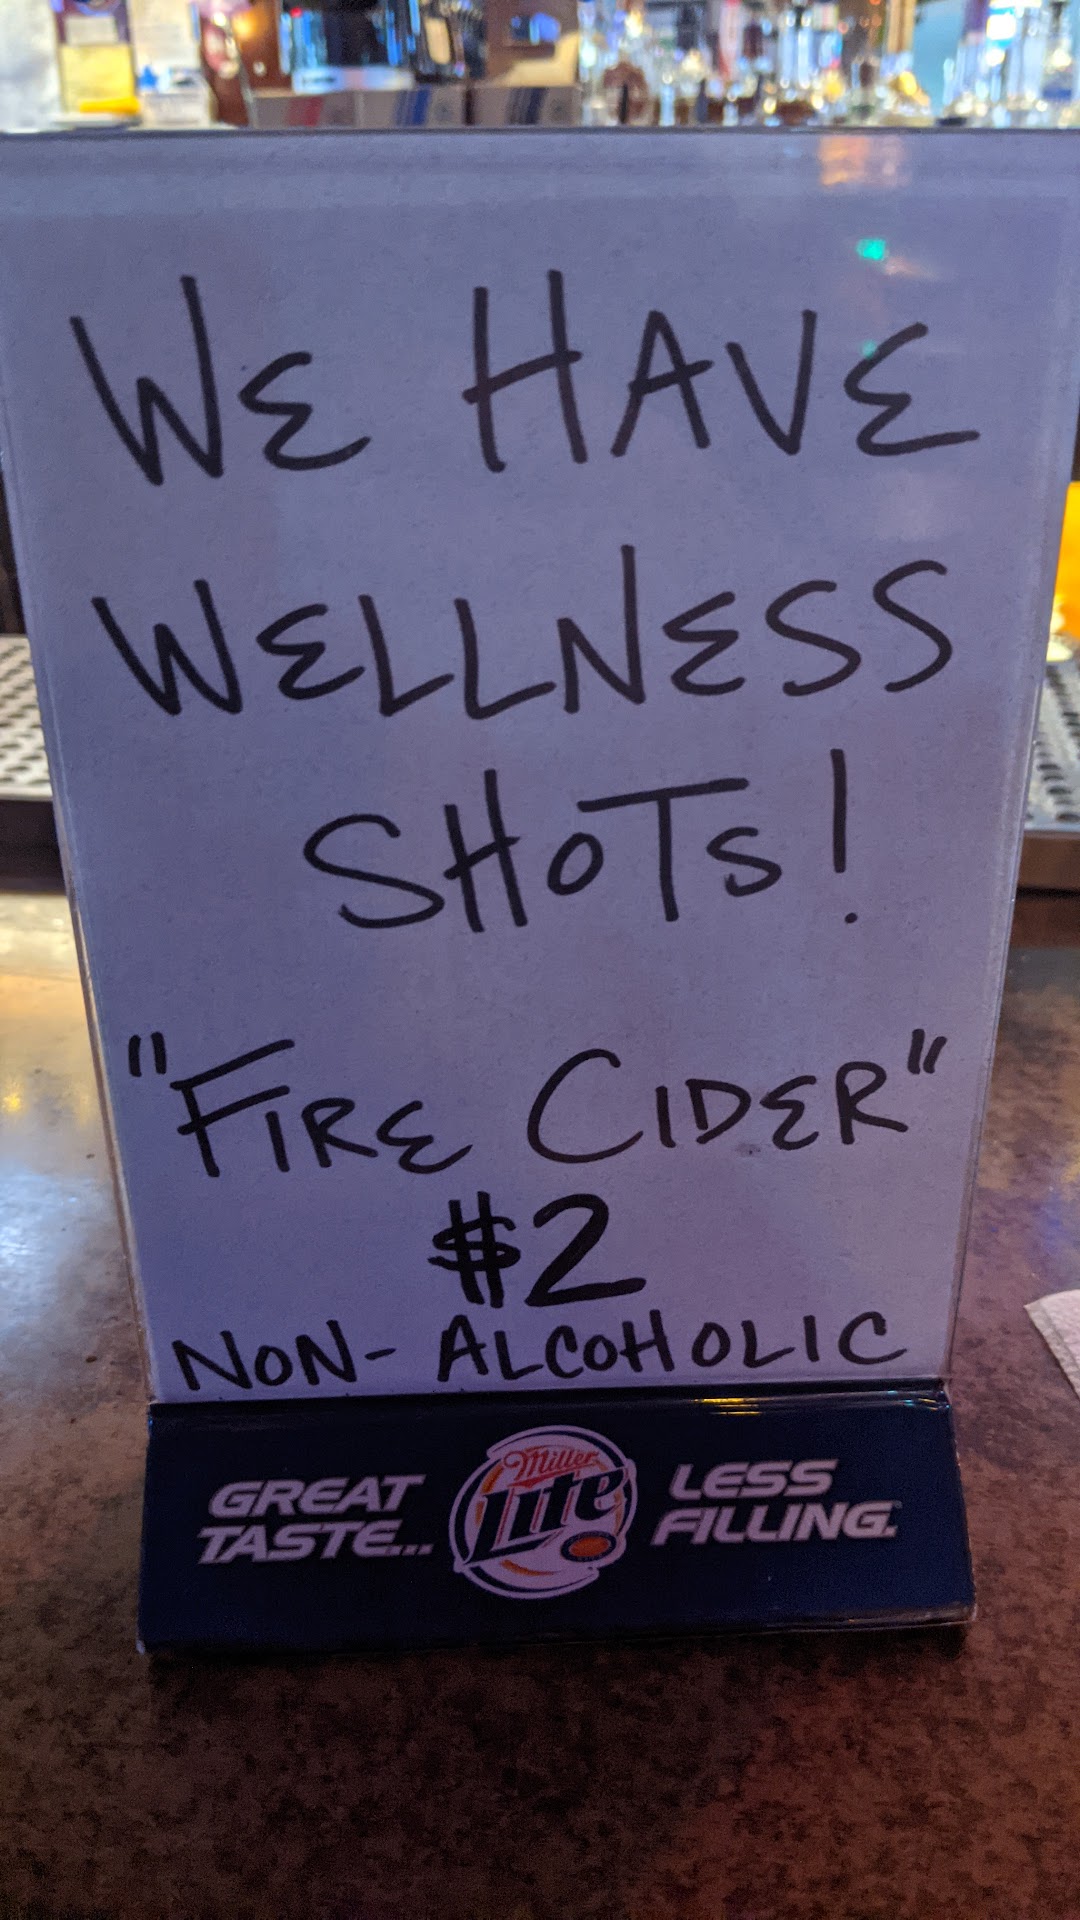 WE HAVE
WELLNESS
SHOTS!
"FIRE CIDER"
$2
NON-ALCOHOLIC
GREAT
TASTE...
Miller
Lite
LESS
FILLING.